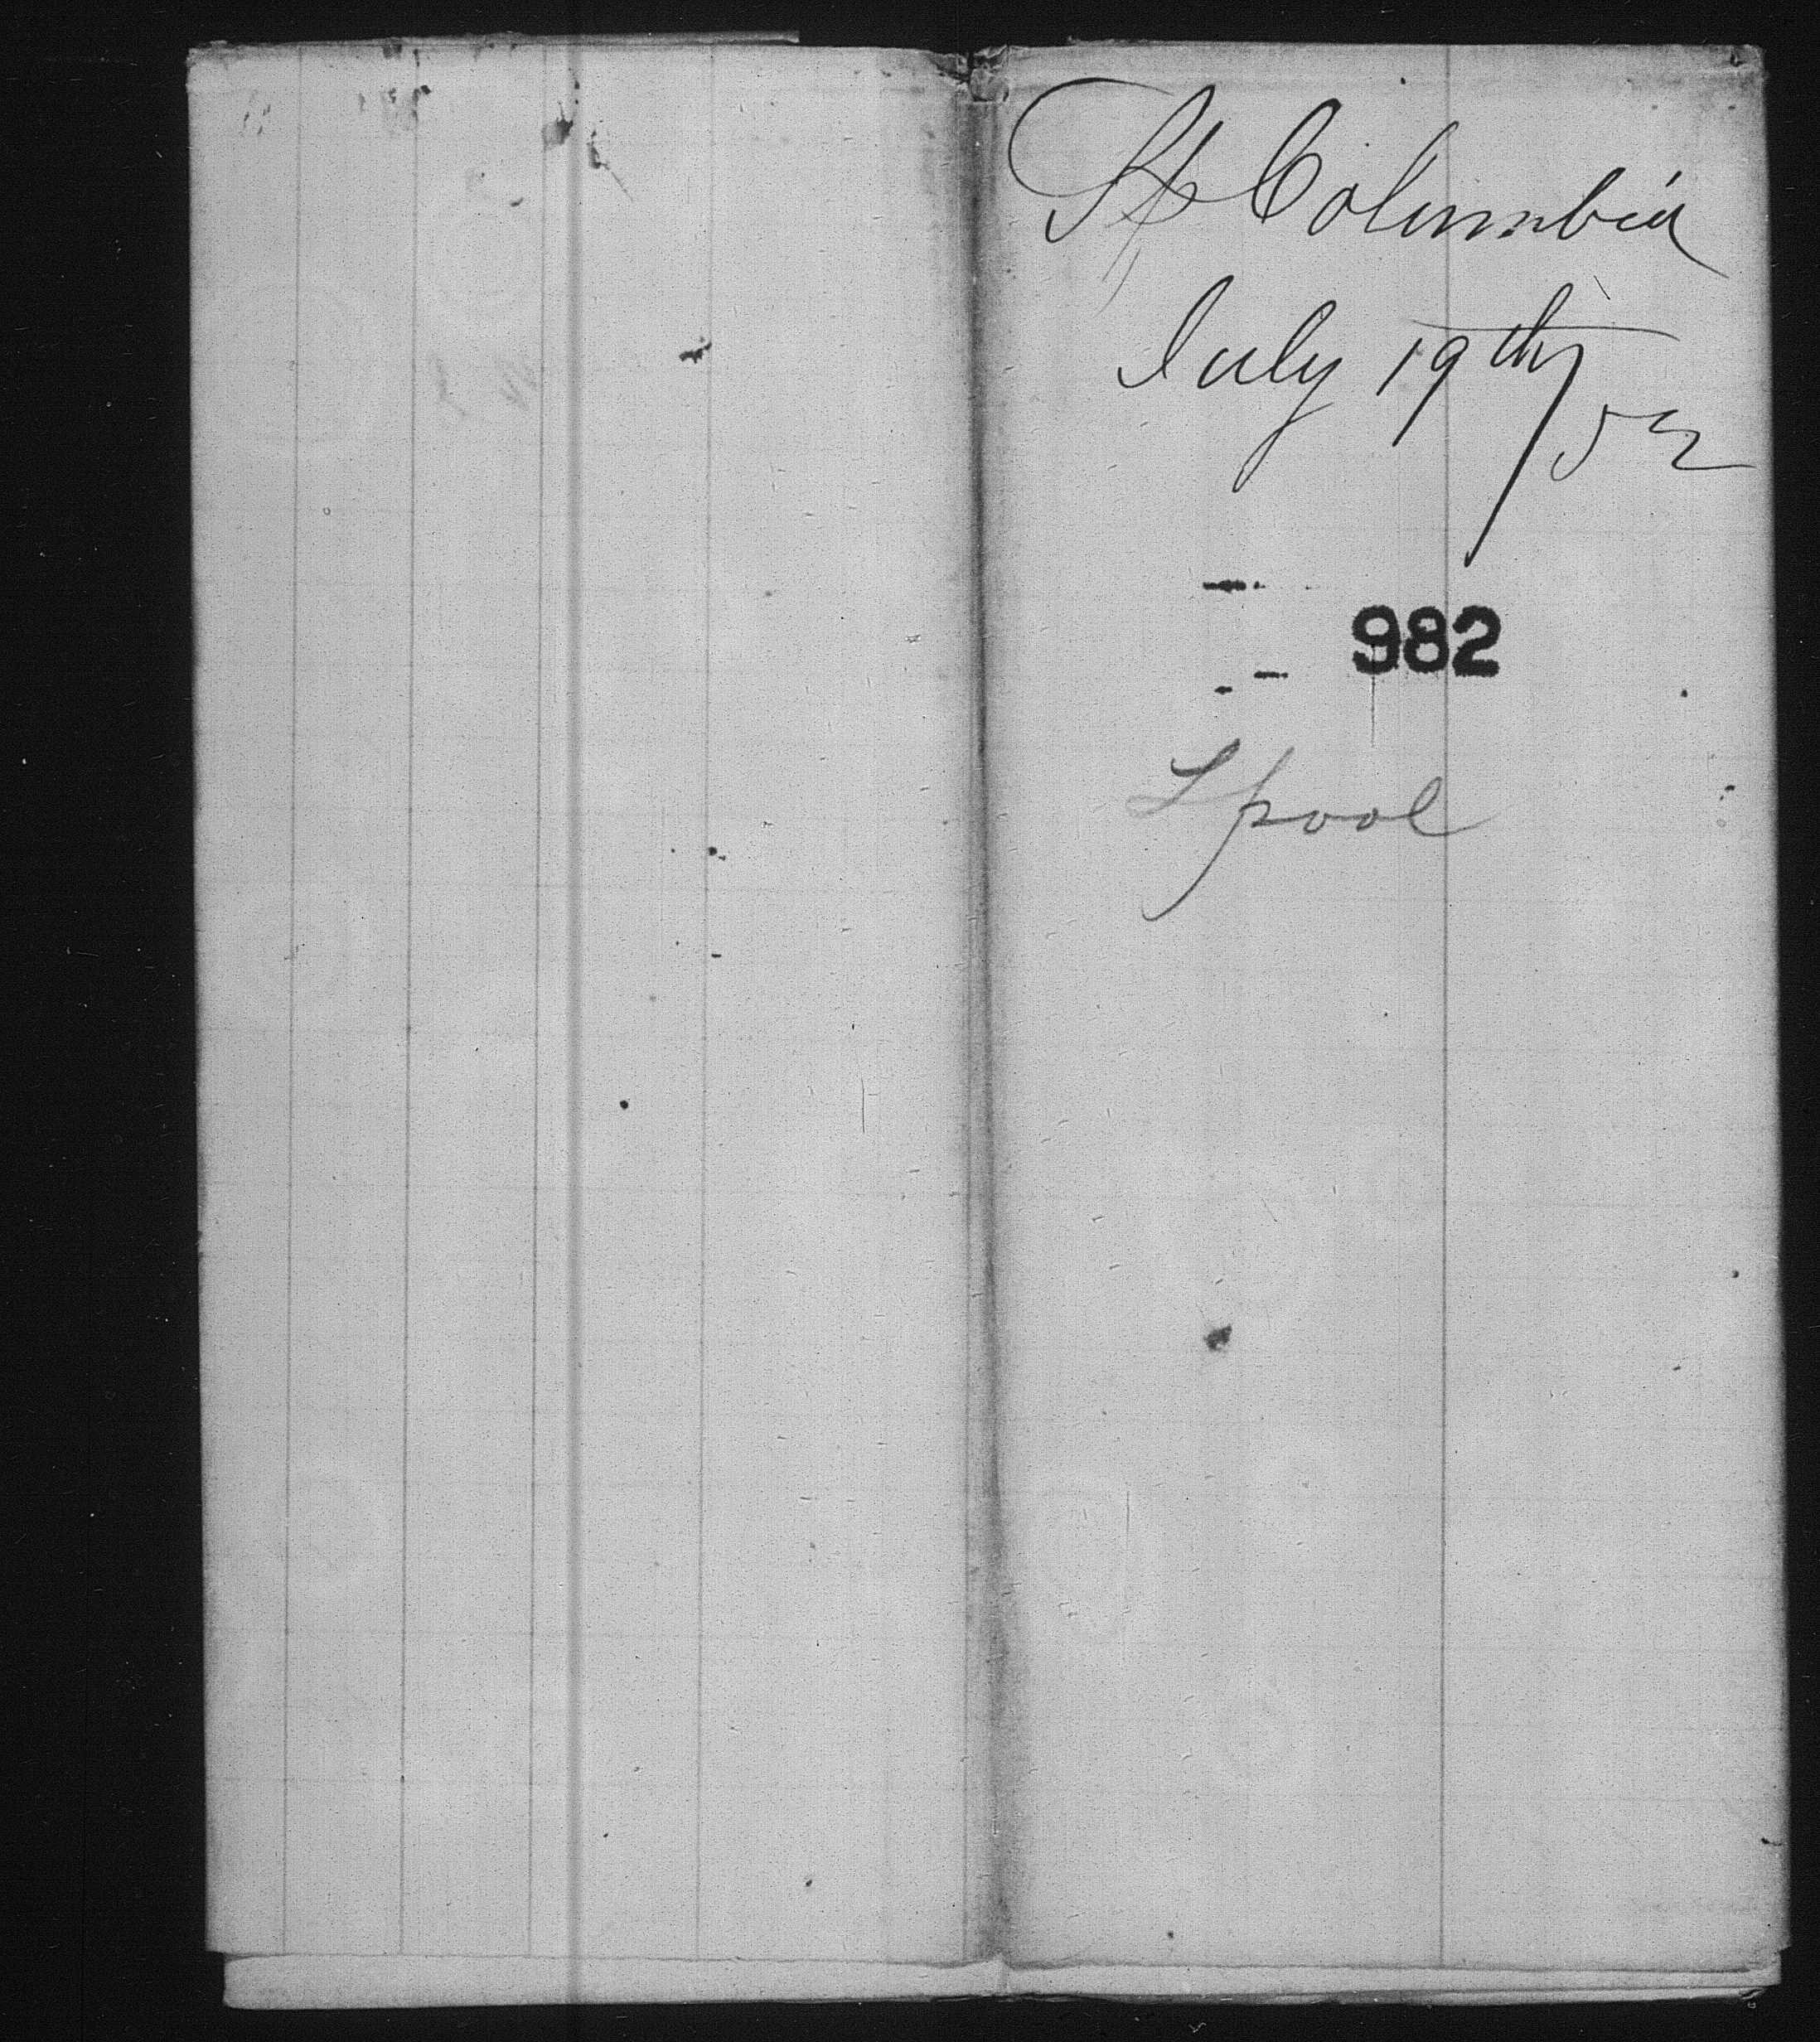 Sp Columbia
July 19th/52
982
Lpool